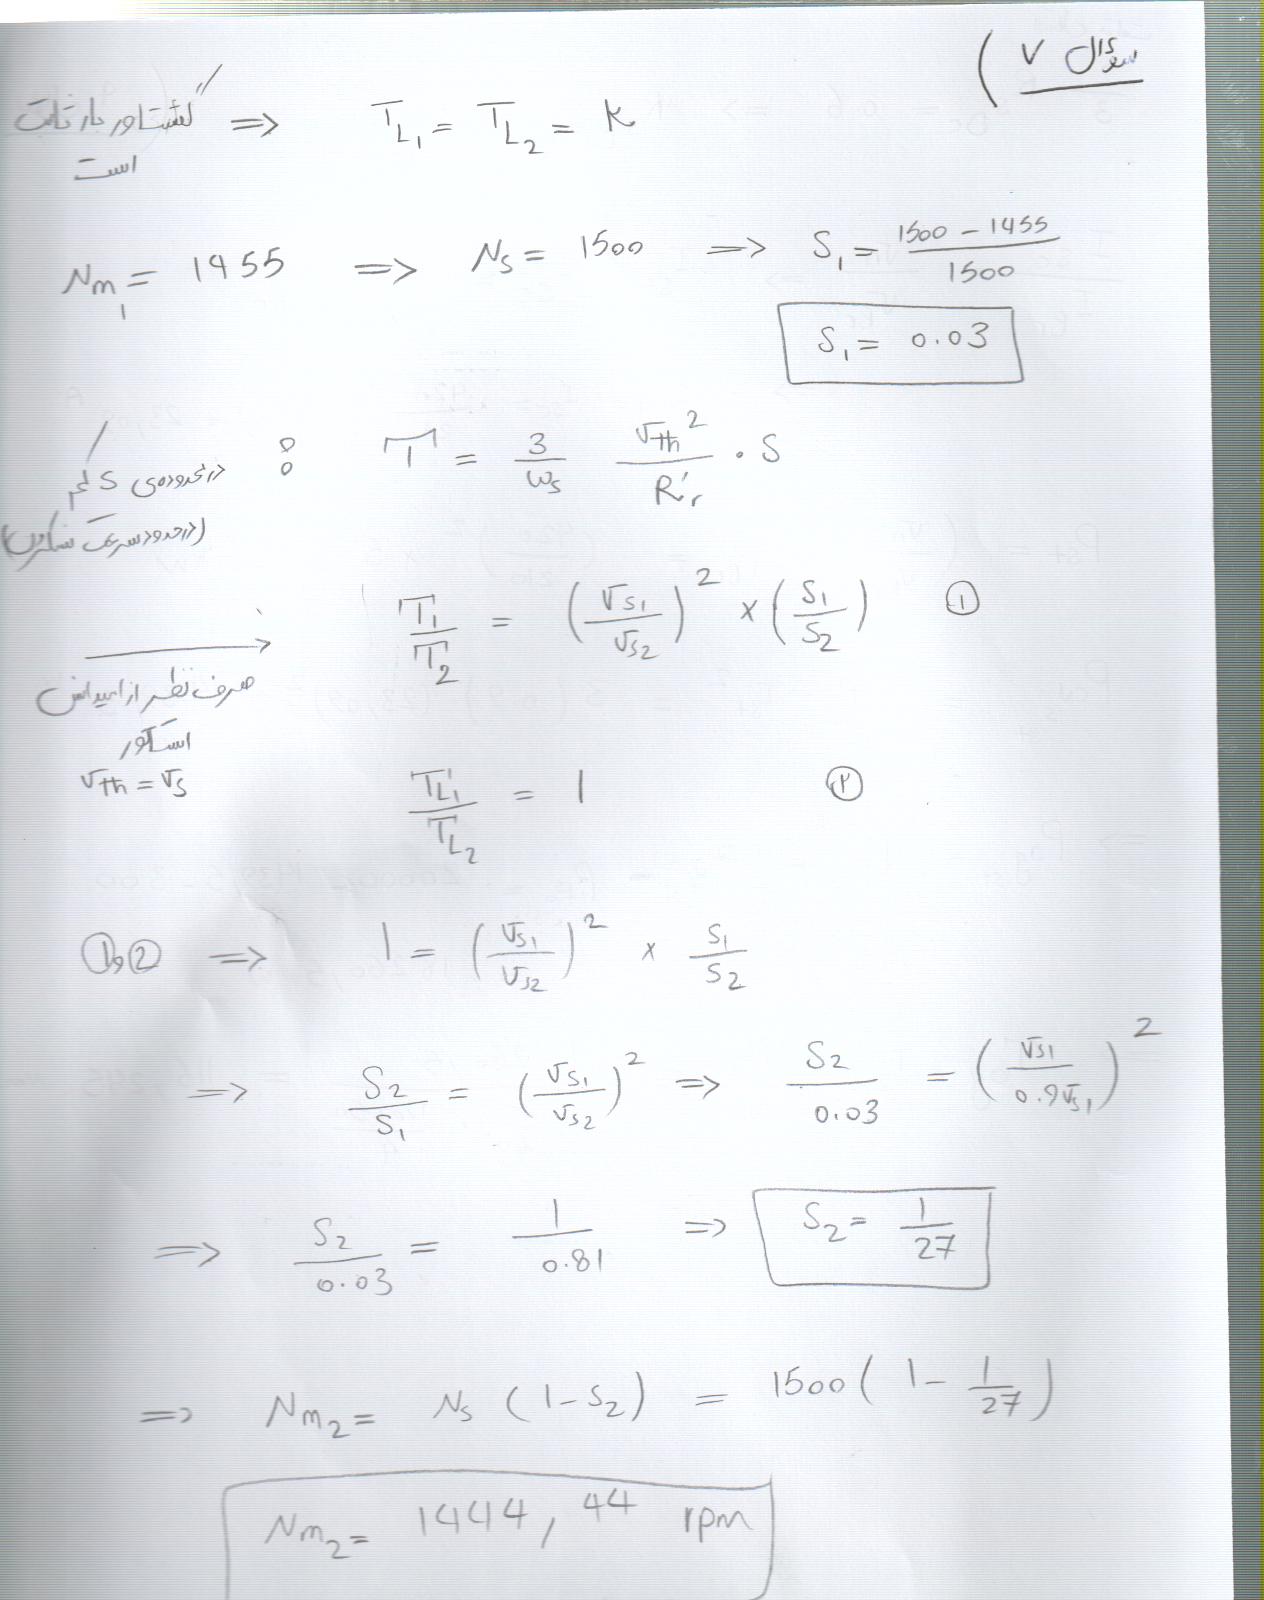 سوال ۷ )
گشتاور بار ثابت است => T_L1 = T_L2 = K
N_m1 = 1455 => N_s = 1500 => S_1 = (1500 - 1455)/1500
S_1 = 0.03
در محدوده‌ی S کم : T = 3/ω_s V_th^2/R'_r . S
(در حدود سرعت سنکرون)
T_1/T_2 = (V_s1/V_s2)^2 × (S_1/S_2) ①
صرف نظر از امپدانس
استاتور
V_th = V_s
T_L1/T_L2 = 1 ②
① و ② => 1 = (V_s1/V_s2)^2 × S_1/S_2
=> S_2/S_1 = (V_s1/V_s2)^2 => S_2/0.03 = (V_s1/0.9V_s1)^2
=> S_2/0.03 = 1/0.81 => S_2 = 1/27
=> N_m2 = N_s (1-S_2) = 1500 (1 - 1/27)
N_m2 = 1444,44 rpm